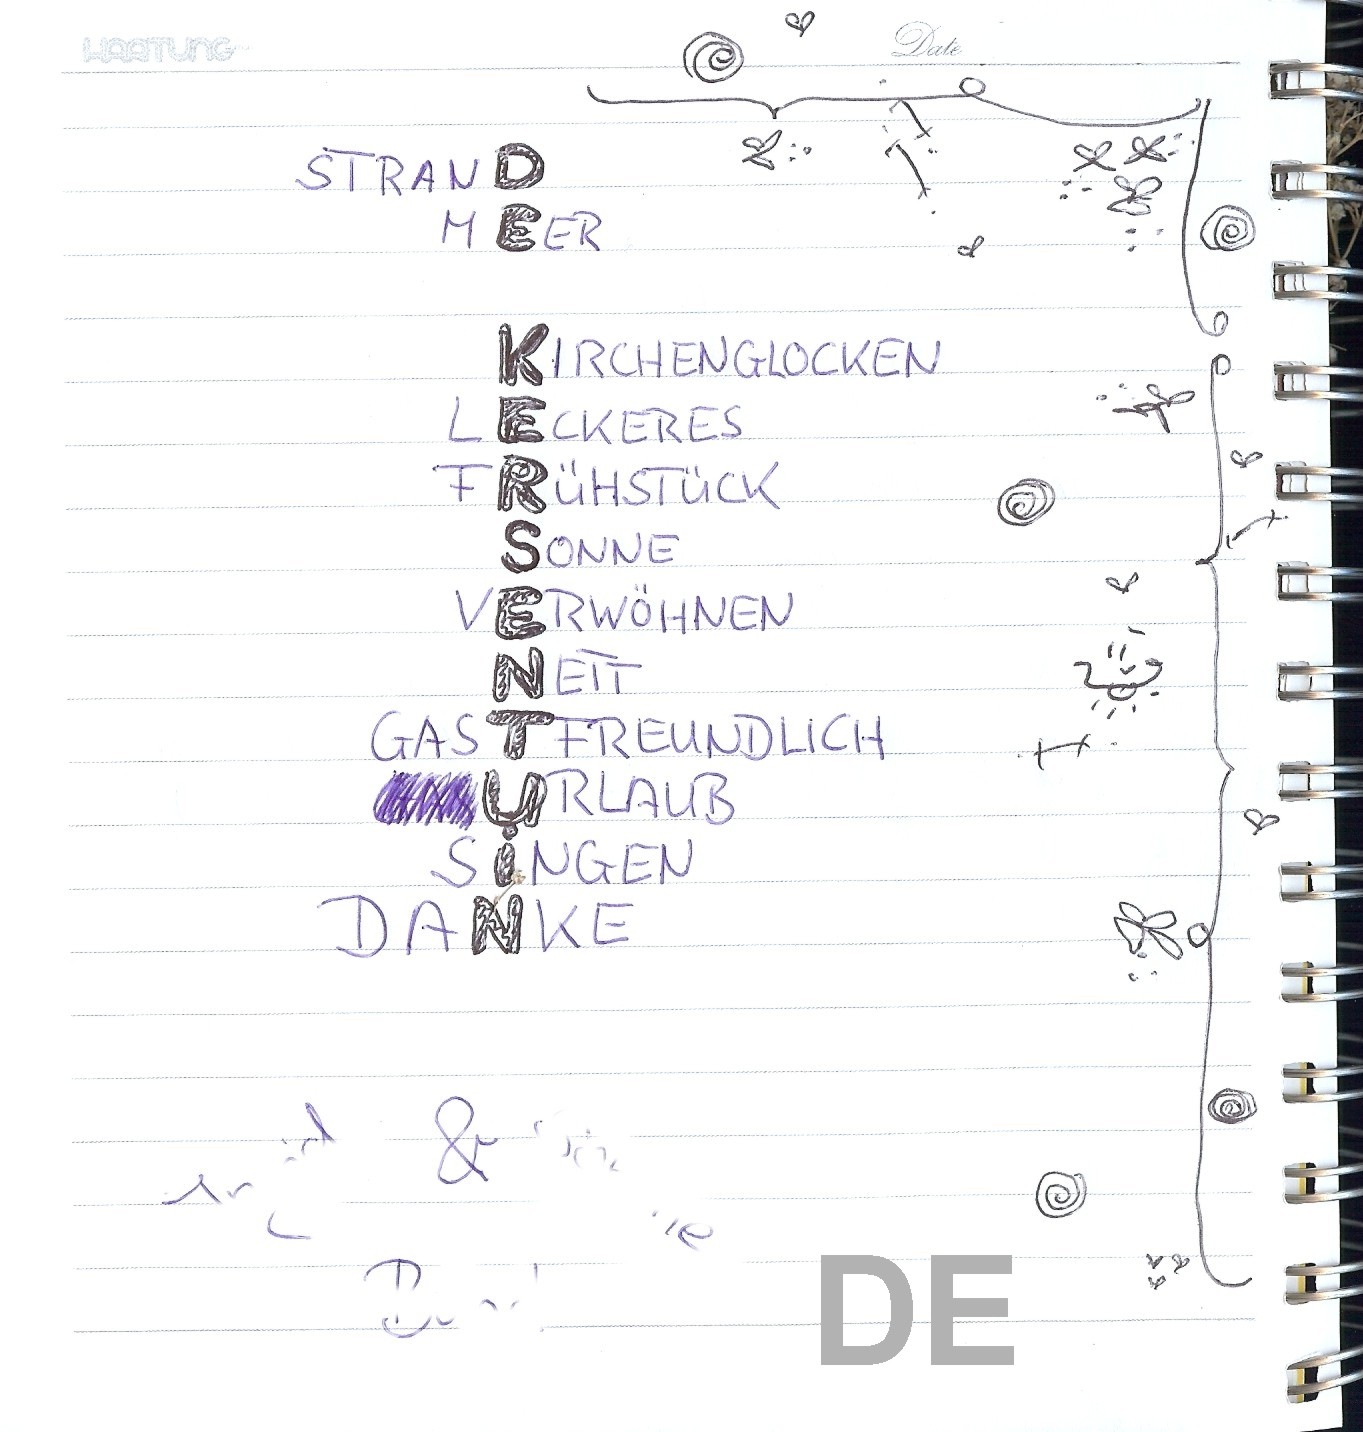 HARTUNG
Date
STRAND
MEER
KIRCHENGLOCKEN
LECKERES
FRÜHSTÜCK
SONNE
VERWÖHNEN
NETT
GASTFREUNDLICH
URLAUB
SINGEN
DANKE
&
DE